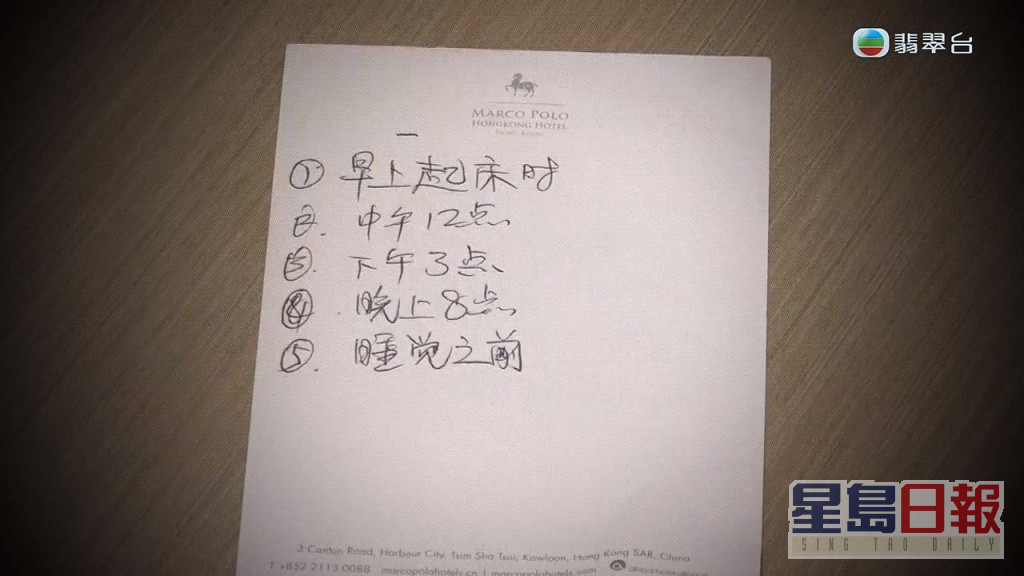 翡翠台
MARCO POLO
HONGKONG HOTEL
HONG KONG
一
① 早上起床时
②. 中午12点
③. 下午3点
④. 晚上8点
⑤. 睡觉之前
3 Canton Road, Harbour City, Tsim Sha Tsui, Kowloon, Hong Kong SAR, China
T +852 2113 0088 marcopolohotels.cn | marcopolohotels.com
星島日報
SING TAO DAILY